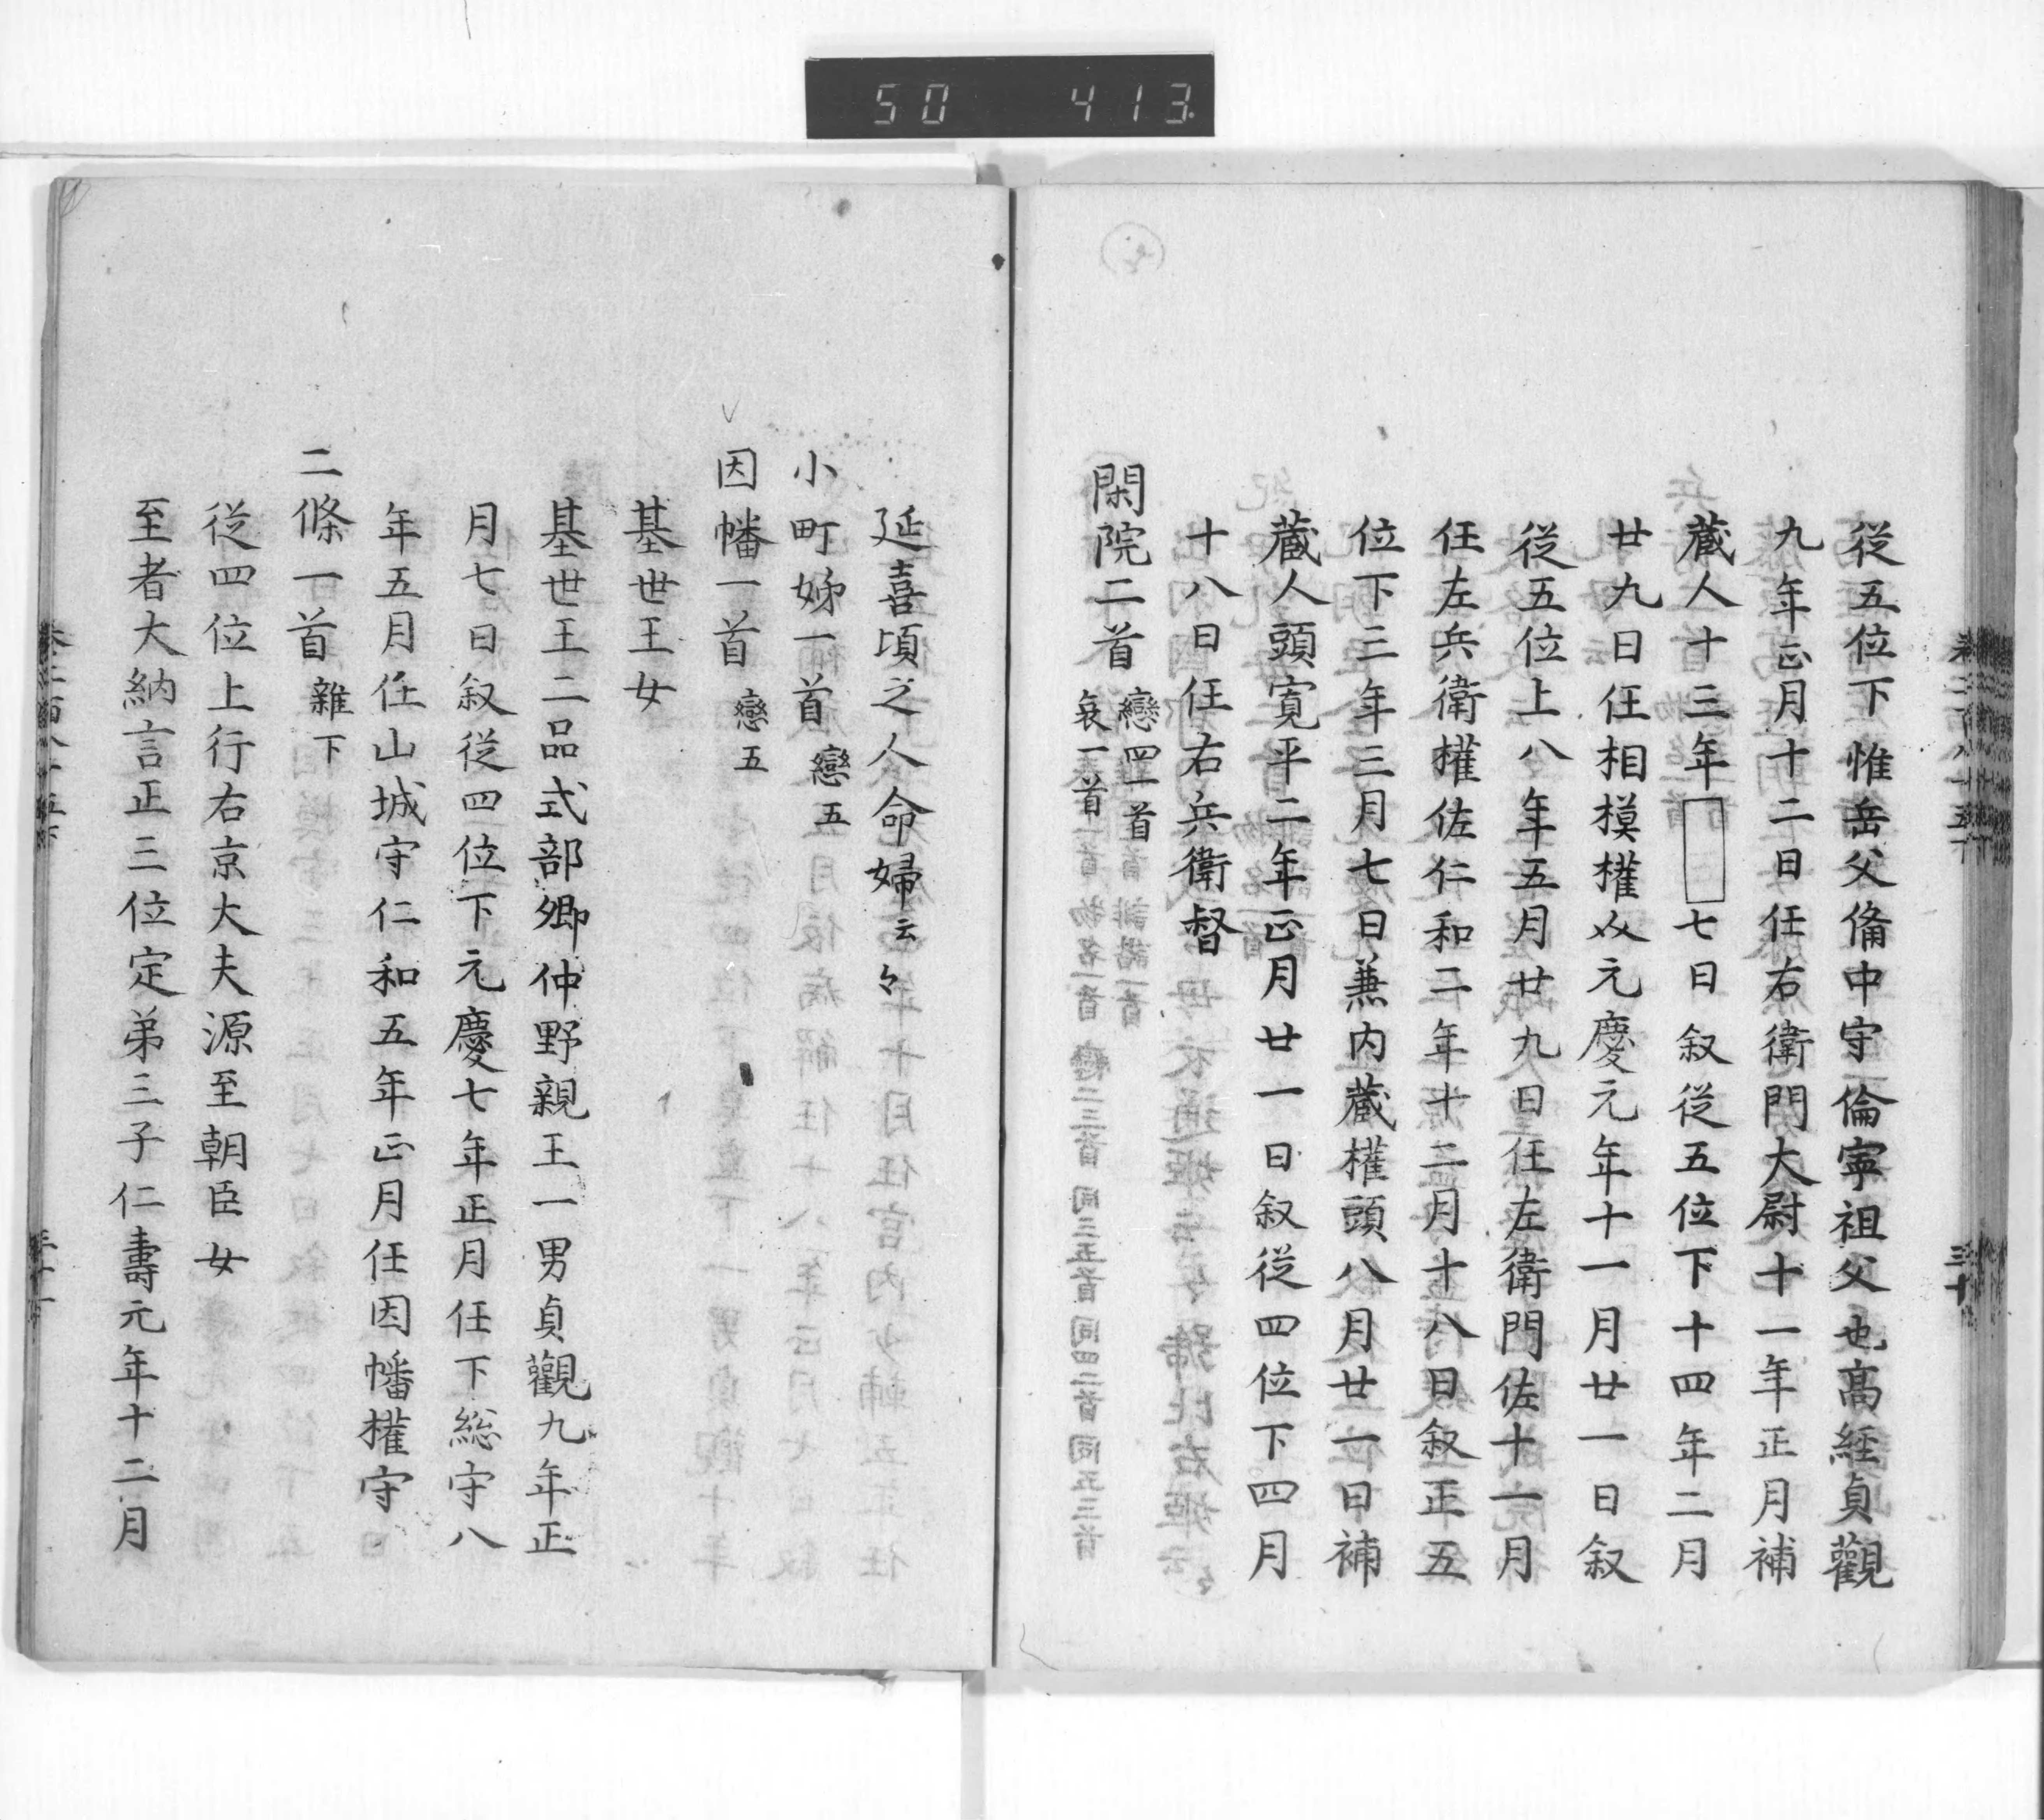 50 413
從五位下惟岳父備中守倫寧祖父也髙経貞觀
九年正月十二日任右衛門大尉十一年正月補
蔵人十三年 七日叙從五位下十四年二月
廿九日任相摸權久元慶元年十一月廿一日叙
從五位上八年五月廿九日任左衛門佐十一月
任左兵衛權佐仁和二年十二月十八日叙正五
位下三年三月七日兼内蔵權頭八月廿一日補
蔵人頭寛平二年正月廿一日叙從四位下四月
十八日任右兵衛督
閑院二首 戀四一首
哀一首
延喜頃之人命婦云々
小町姊一首 戀五
因幡一首 戀五
基世王女
基世王二品式部卿仲野親王一男貞觀九年正
月七日叙從四位下元慶七年正月任下総守八
年五月任山城守仁和五年正月任因幡權守
二條一首 雜下
從四位上行右京大夫源至朝臣女
至者大納言正三位定弟三子仁壽元年十二月